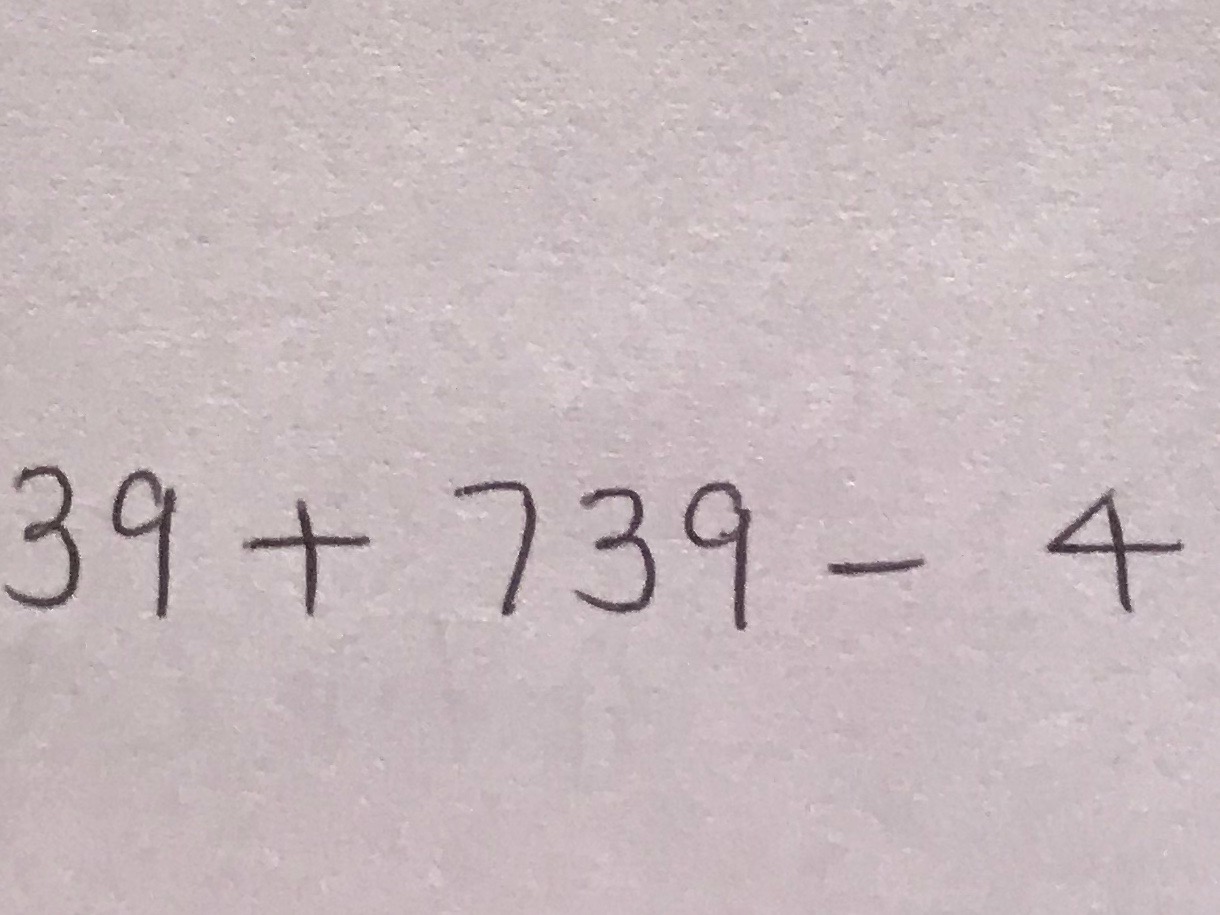 39 + 739 - 4